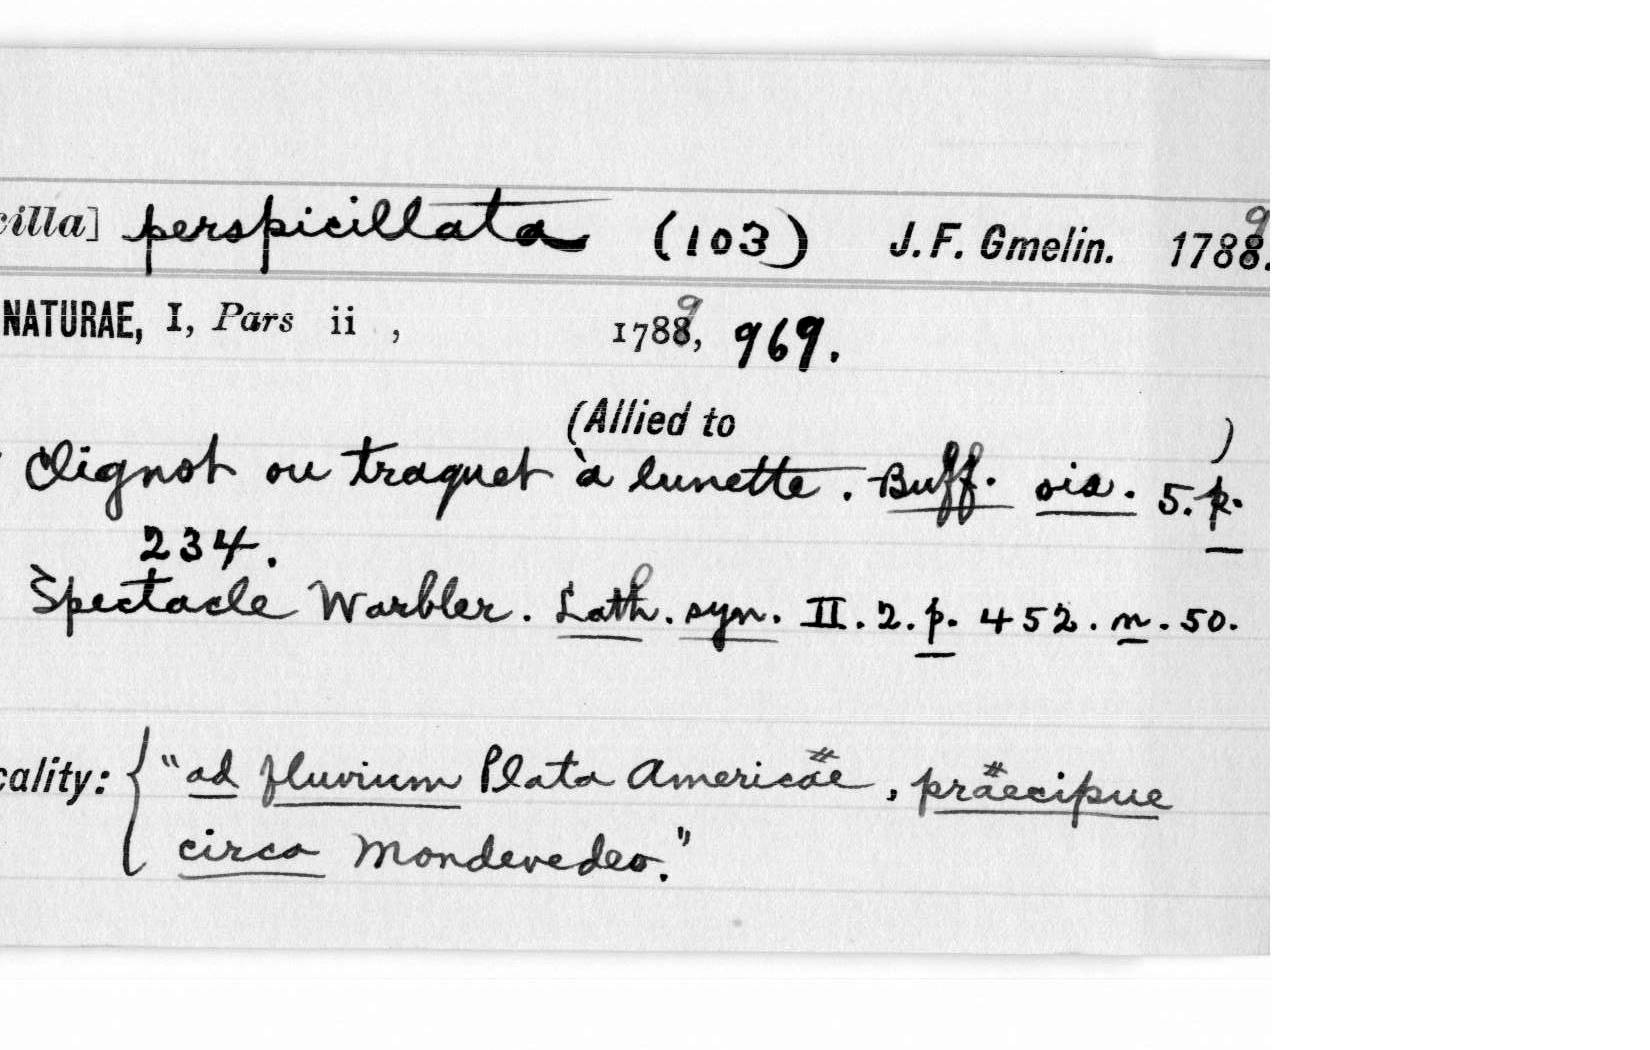 cilla] perspicillata (103) J. F. Gmelin. 1789.
NATURAE, I, Pars ii , 1789, 969.
(Allied to )
Clignot ou traquet à lunette. Buff. ois. 5. p.
234.
Spectacle Warbler. Lath. syn. II. 2. p. 452. n. 50.
cality: { "ad fluvium Plata Americae, praecipue
circa Mondevedeo."